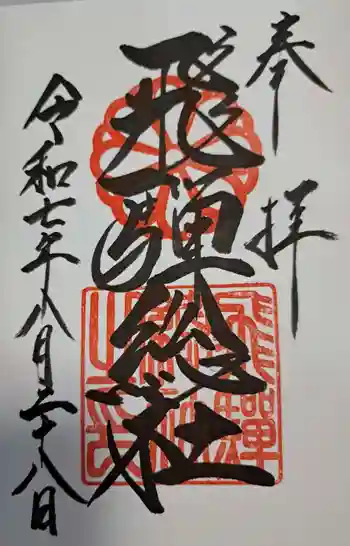 奉拝
飛騨総社
令和七年八月二十八日
飛騨
総社
之印